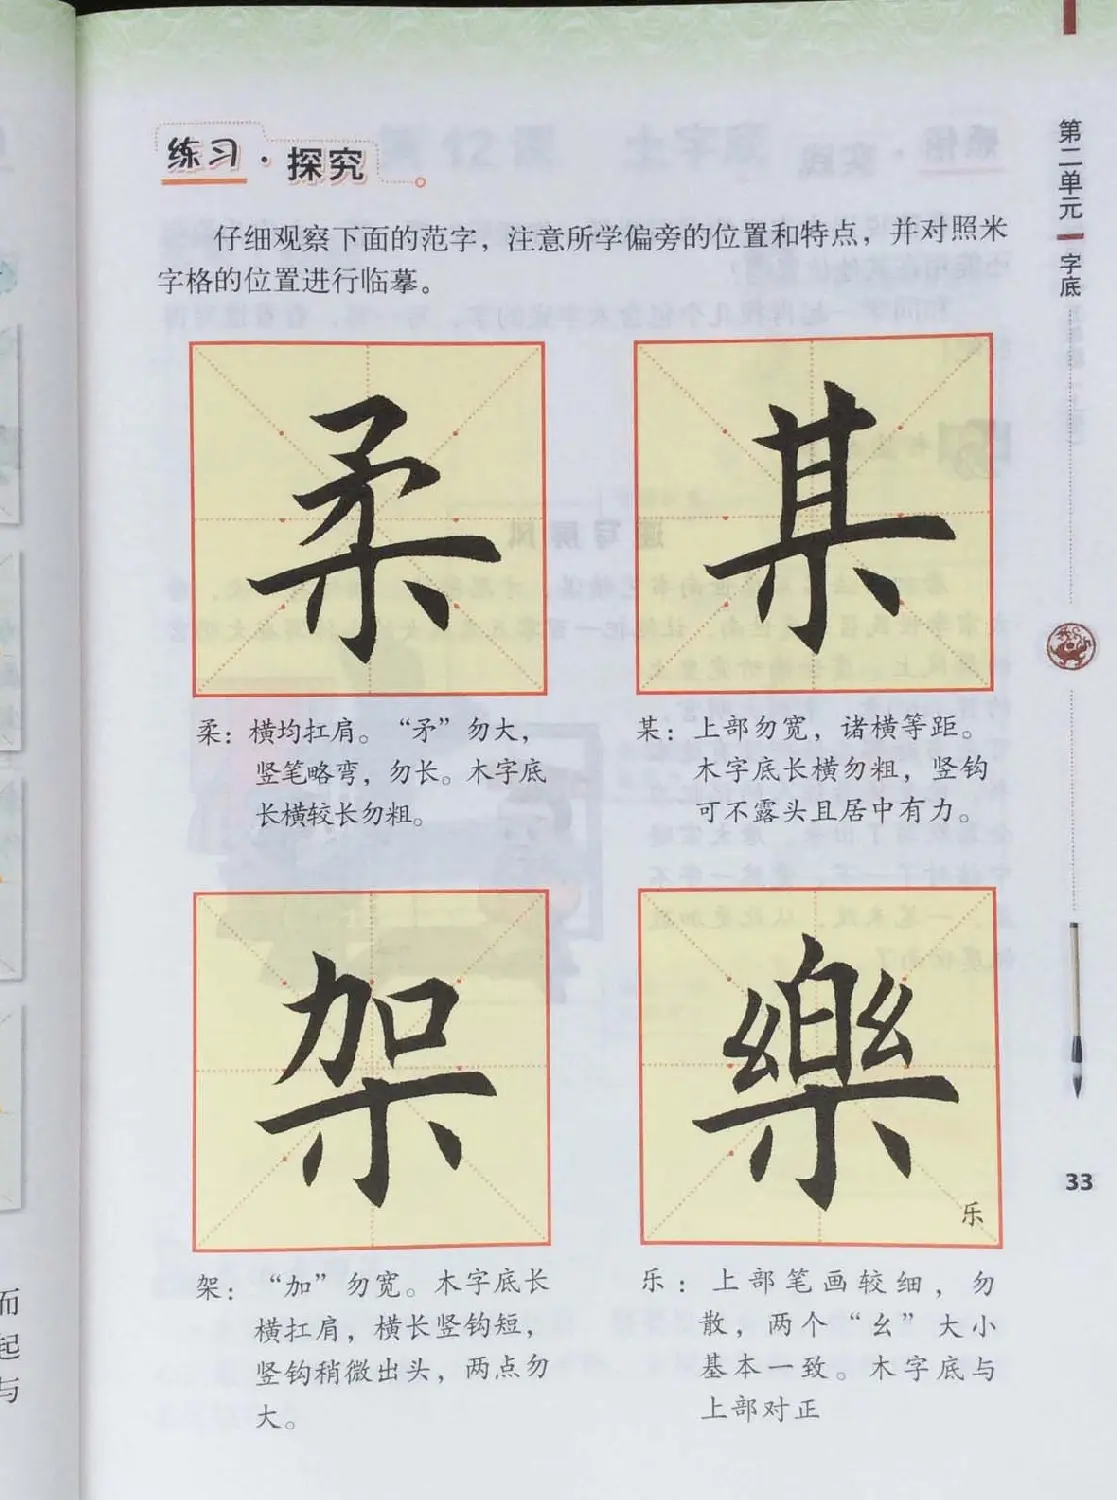 练习·探究
仔细观察下面的范字，注意所学偏旁的位置和特点，并对照米
字格的位置进行临摹。
柔
某
柔：横均扛肩。“矛”勿大，
竖笔略弯，勿长。木字底
长横较长勿粗。
某：上部勿宽，诸横等距。
木字底长横勿粗，竖钩
可不露头且居中有力。
架
樂
乐
架：“加”勿宽。木字底长
横扛肩，横长竖钩短，
竖钩稍微出头，两点勿
大。
乐：上部笔画较细，勿
散，两个“幺”大小
基本一致。木字底与
上部对正
第二单元
字底
33
而
起
与